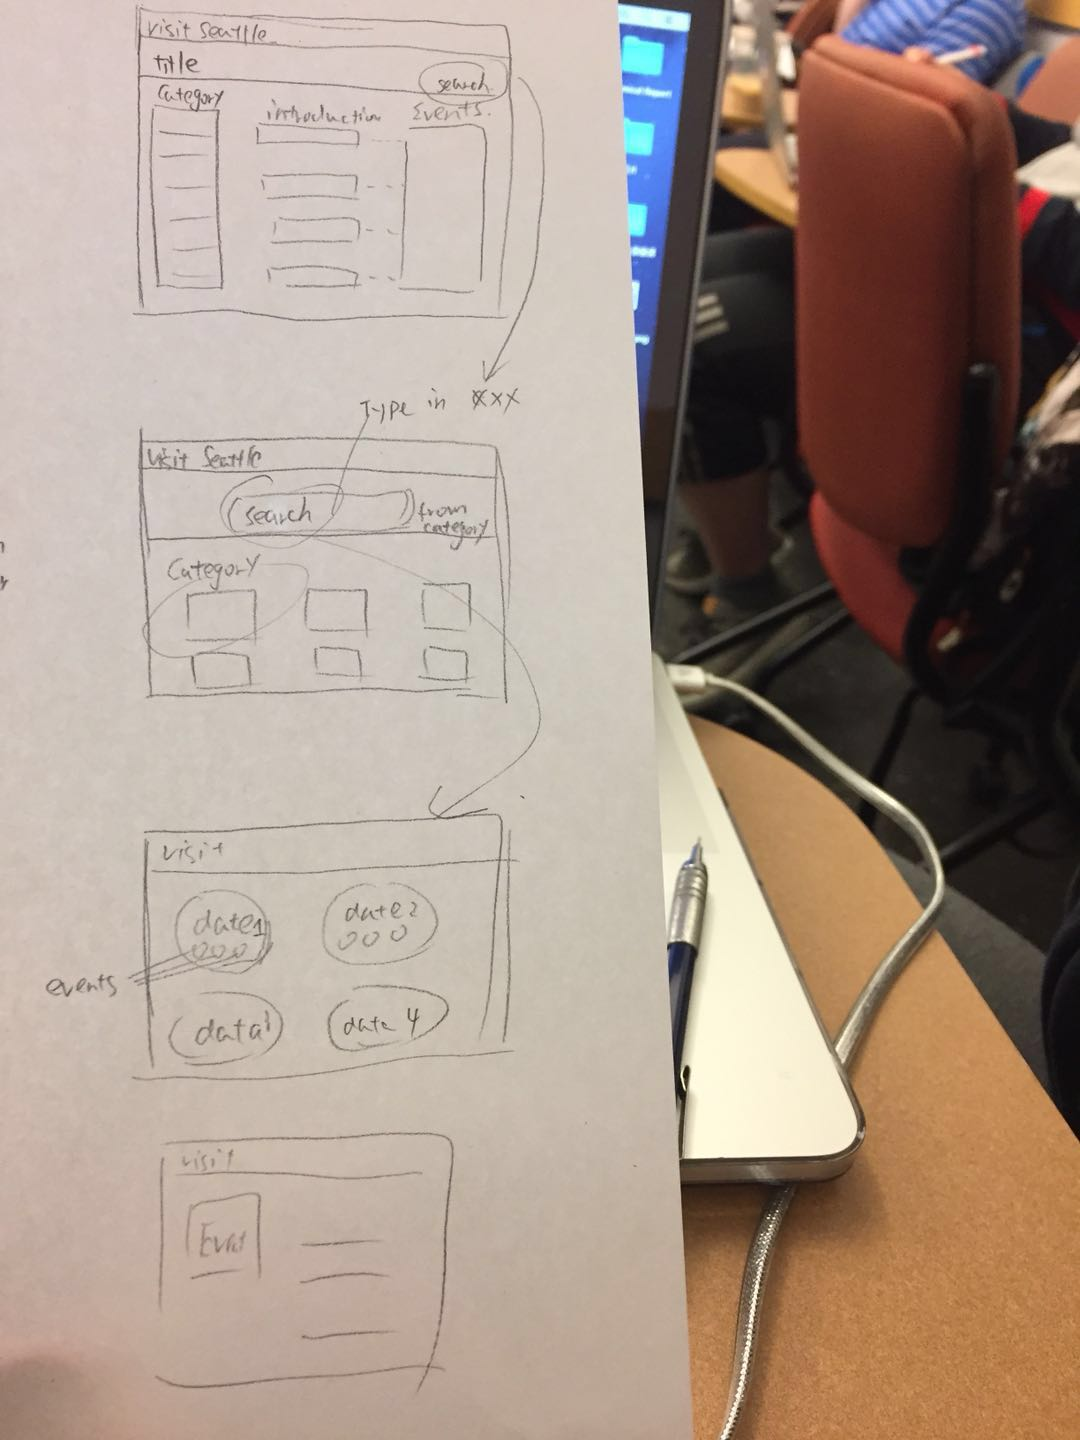 visit seattle
title
search
Category
introduction
Events.
Type in xxx
visit Seattle
search
from
category
Category
visit
date1
date2
events
data3
date 4
visit
Event